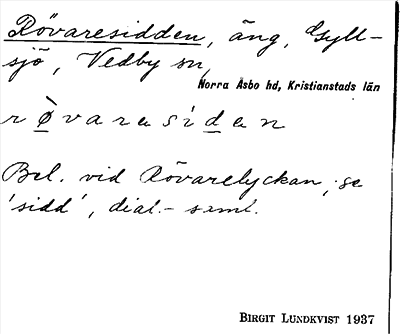 Rövaresidden, äng, Gyll-
sjö, Vedby sn,
Norra Åsbo hd, Kristianstads län
r ø̀ v a r e s i d e n
Bel. vid Rövarelyckan; se
'sidd', dial.- saml.
BIRGIT LUNDKVIST 1937